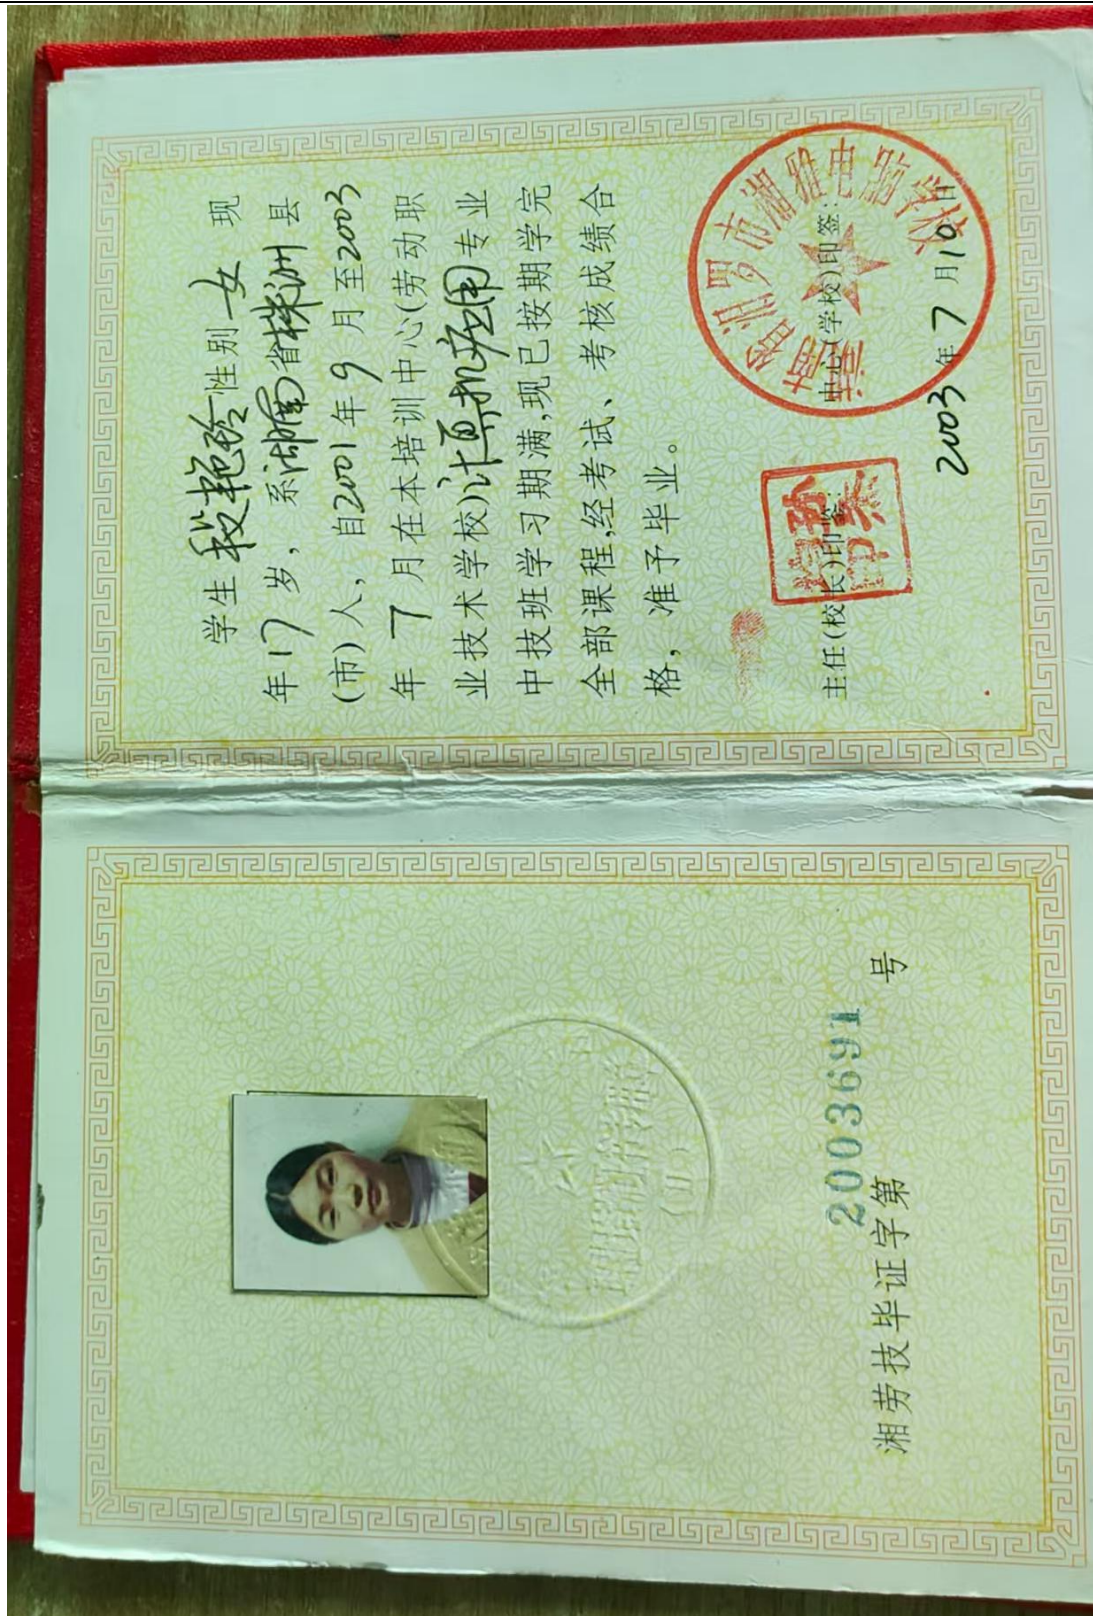 湘劳技毕证字第 2003691 号
学生 段艳玲 性别 女 现
年 17 岁，系 湖南 省 株洲 县
(市)人，自 2001 年 9 月至 2003
年 7 月在本培训中心(劳动职
业技术学校) 计算机应用 专业
中技班学习期满,现已按期学完
全部课程,经考试、考核成绩合
格，准予毕业。
主任(校长)印签:
中心(学校)印签:
湖南省汨罗市湘雅电脑学校
2003 年 7 月 10 日